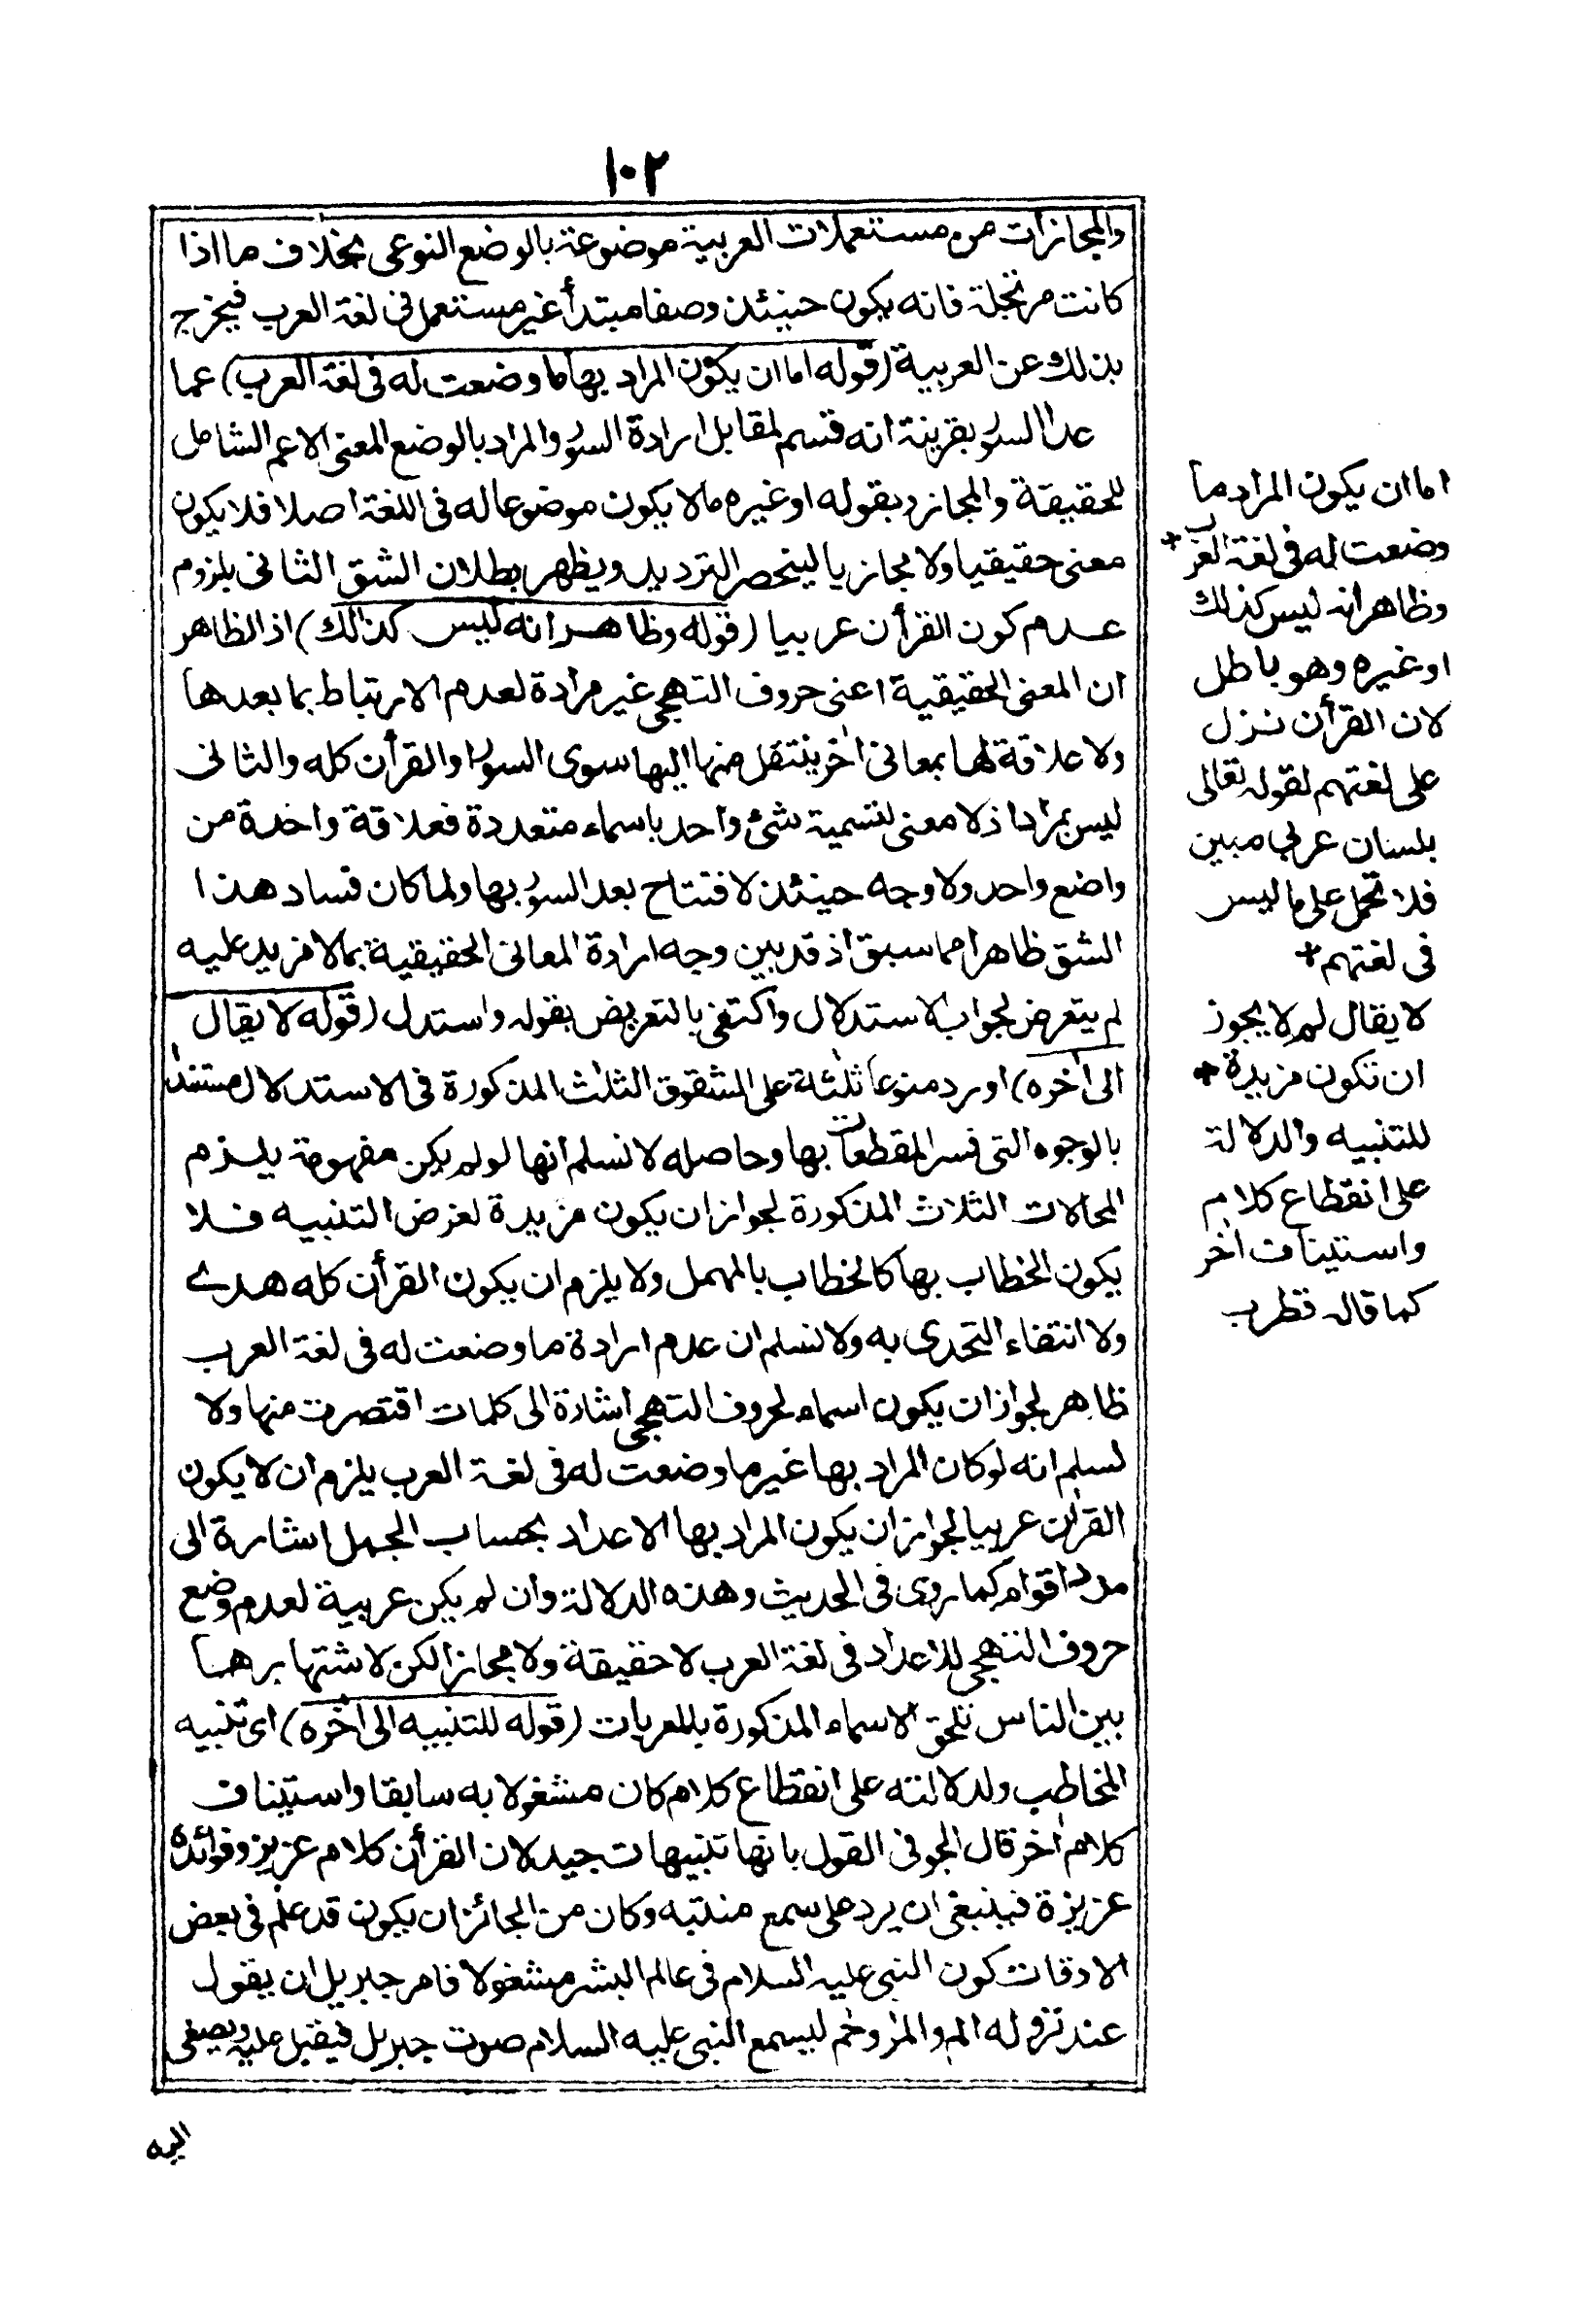 ١٠٢
والمجازات من مستعملات العربية موضوعة بالوضع النوعى بخلاف ما اذا
كانت مرتجلة فانه يكون حينئذ وصفا مبتدأ غير مستعمل فى لغة العرب فيخرج
بذلك عن العربية (قوله اما ان يكون المراد بها ما وضعت له فى لغة العرب) عما
عدا السور بقرينة انه قسم لمقابل ارادة السور والمراد بالوضع المعنى الاعم الشامل
للحقيقة والمجاز وبقوله او غيره مالا يكون موضوعا له فى اللغة اصلا فلا يكون
معنى حقيقيا ولا مجازيا لينحصر الترديد ويظهر بطلان الشق الثانى بلزوم
عدم كون القرأن عربيا (قوله وظاهر انه ليس كذالك) اذ الظاهر
ان المعنى الحقيقية اعنى حروف التهجى غير مرادة لعدم الارتباط بما بعدها
ولا علاقة لها بمعانى اخر ينتقل منها اليها سوى السور او القرأن كله والثانى
ليس بمراد اذ لا معنى لتسمية شئ واحد باسماء متعددة فعلاقة واحدة من
واضع واحد ولا وجه حينئذ لافتتاح بعد السور بها ولما كان فساد هذا
الشق ظاهرا مما سبق اذ قد بين وجه ارادة المعانى الحقيقية بمالا مزيد عليه
لم يتعرض لجواب الاستدلال واكتفى بالتعريض بقوله واستدل (قوله لا يقال
الى اخره) اورد منوعا ثلثة على الشقوق الثلث المذكورة فى الاستدلال مستندا
بالوجوه التى فسر المقطعات بها وحاصله لا نسلم انها لو لم يكن مفهومة يلزم
المحالات الثلاث المذكورة لجواز ان يكون مزيدة لغرض التنبيه فلا
يكون الخطاب بها كالخطاب بالمهمل ولا يلزم ان يكون القرأن كله هدى
ولا انتفاء التحدى به ولا نسلم ان عدم ارادة ما وضعت له فى لغة العرب
ظاهر لجواز ان يكون اسماء لحروف التهجى اشارة الى كلمات اقتصرت منها ولا
نسلم انه لو كان المراد بها غير ما وضعت له فى لغة العرب يلزم ان لا يكون
القرأن عربيا لجواز ان يكون المراد بها الاعداد بحساب الجمل اشارة الى
مدد اقوام كما روى فى الحديث وهذه الدلالة وان لم يكن عربية لعدم وضع
حروف التهجى للاعداد فى لغة العرب لا حقيقة ولا مجازا لكن لاشتهارهما
بين الناس تلحق الاسماء المذكورة بالمعربات (قوله للتنبيه الى اخره) اى تنبيه
المخاطب ولدلالته على انقطاع كلام كان مشغولا به سابقا واستيناف
كلام اخر قال الجوفى القول بانها تنبيهات جيد لان القرأن كلام عزيز وفوائده
عزيزة فينبغى ان يرد على سمع منتبه وكان من الجائز ان يكون قد علم فى بعض
الاوقات كون النبى عليه السلام فى عالم البشر مشغولا فامر جبريل ان يقول
عند نزوله الم والر وحم ليسمع النبى عليه السلام صوت جبريل فيقبل عليه ويصغى
اليه
اما ان يكون المراد ما
وضعت له فى لغة العرب +
وظاهر انه ليس كذلك
او غيره وهو باطل
لان القرأن نزل
على لغتهم لقوله تعالى
بلسان عربى مبين
فلا تحمل على ما ليس
فى لغتهم +
لا يقال لم لا يجوز
ان تكون مزيدة +
للتنبيه والدلالة
على انقطاع كلام
واستيناف اخر
كما قاله قطرب